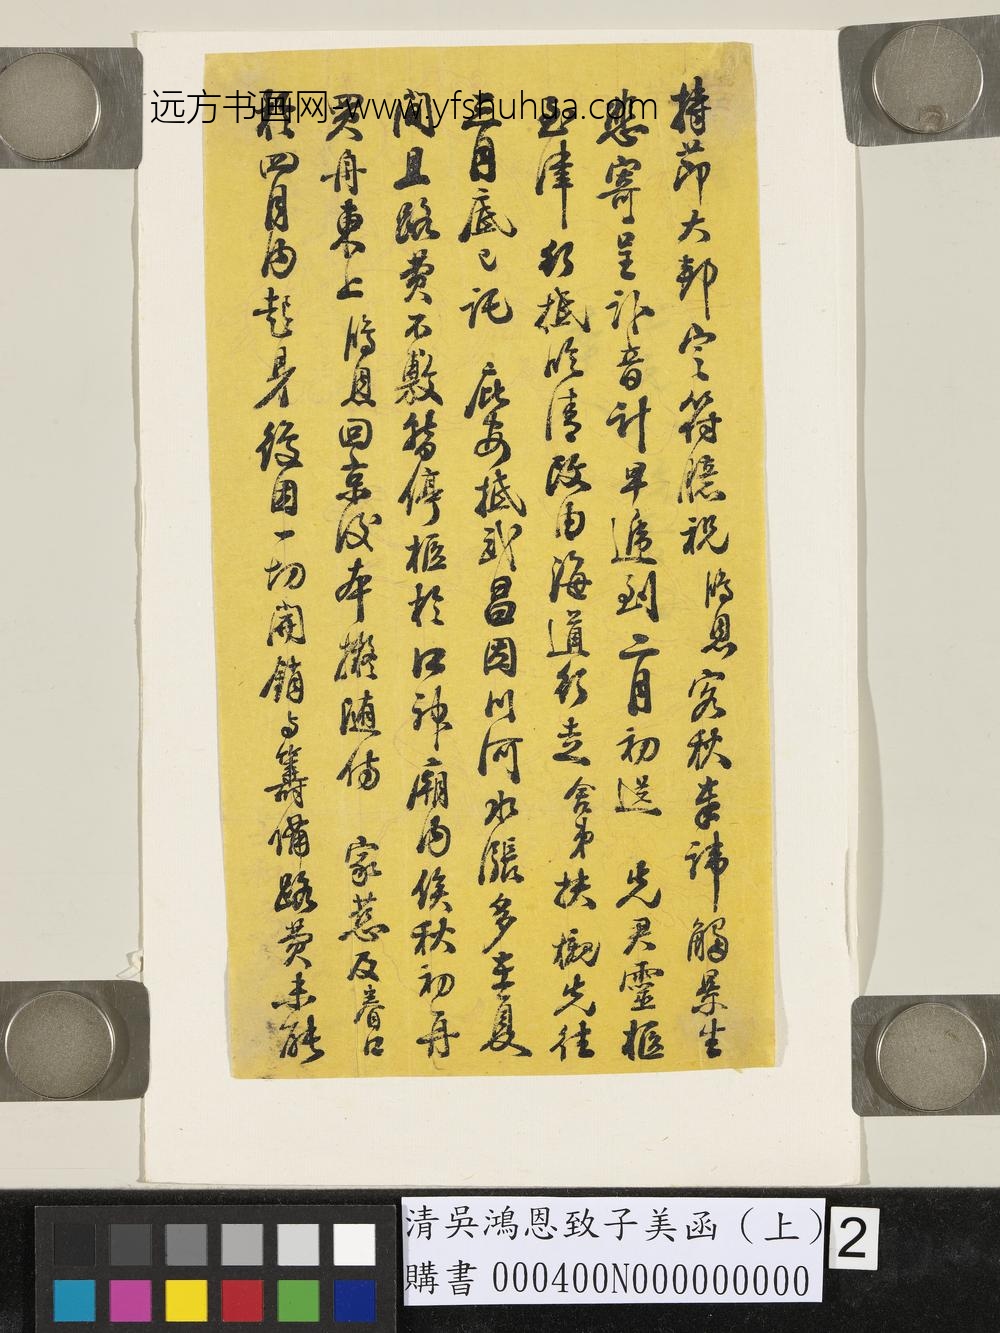 远方书画网-www.yfshuhua.com
持節大郡定符臆祝鴻恩客秋奉諱觸景生
悲寄呈訃音計早遞到二月初送先君靈柩
至津行抵臨清改由海道行走舍弟扶櫬先往
三月底已託庇安抵武昌因川河水漲多在夏
間且路費不敷暫停柩於江神廟內俟秋初再
買舟東上鴻恩回京後本擬隨侍家慈及眷口
在四月內起身後因一切開銷與籌備路費未能
清吳鴻恩致子美函（上）
購書 000400N000000000
2